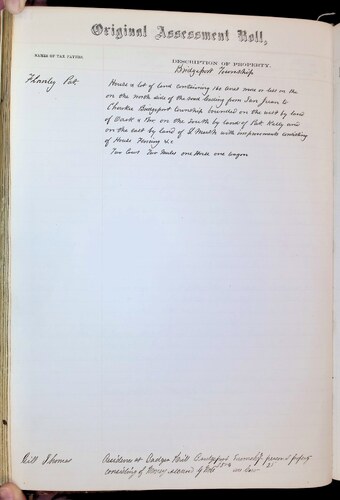 Original Assessment Roll,
NAMES OF TAX PAYERS.
DESCRIPTION OF PROPERTY.
Bridgeport Township
Hanly Pat
House & lot of land containing 160 acres more or less on the
on the North side of the road leading from San Juan to
Cherokee Bridgeport township bounded on the west by land
of & Bro on the South by land of Pat Kelly and
on the east by land of with improvements consisting
of House Fencing &c
Two Cows Two Mules one Horse one wagon
Thomas
Residence at Badger Hill Bridgeport Township personal property
consisting of Money secured by Note